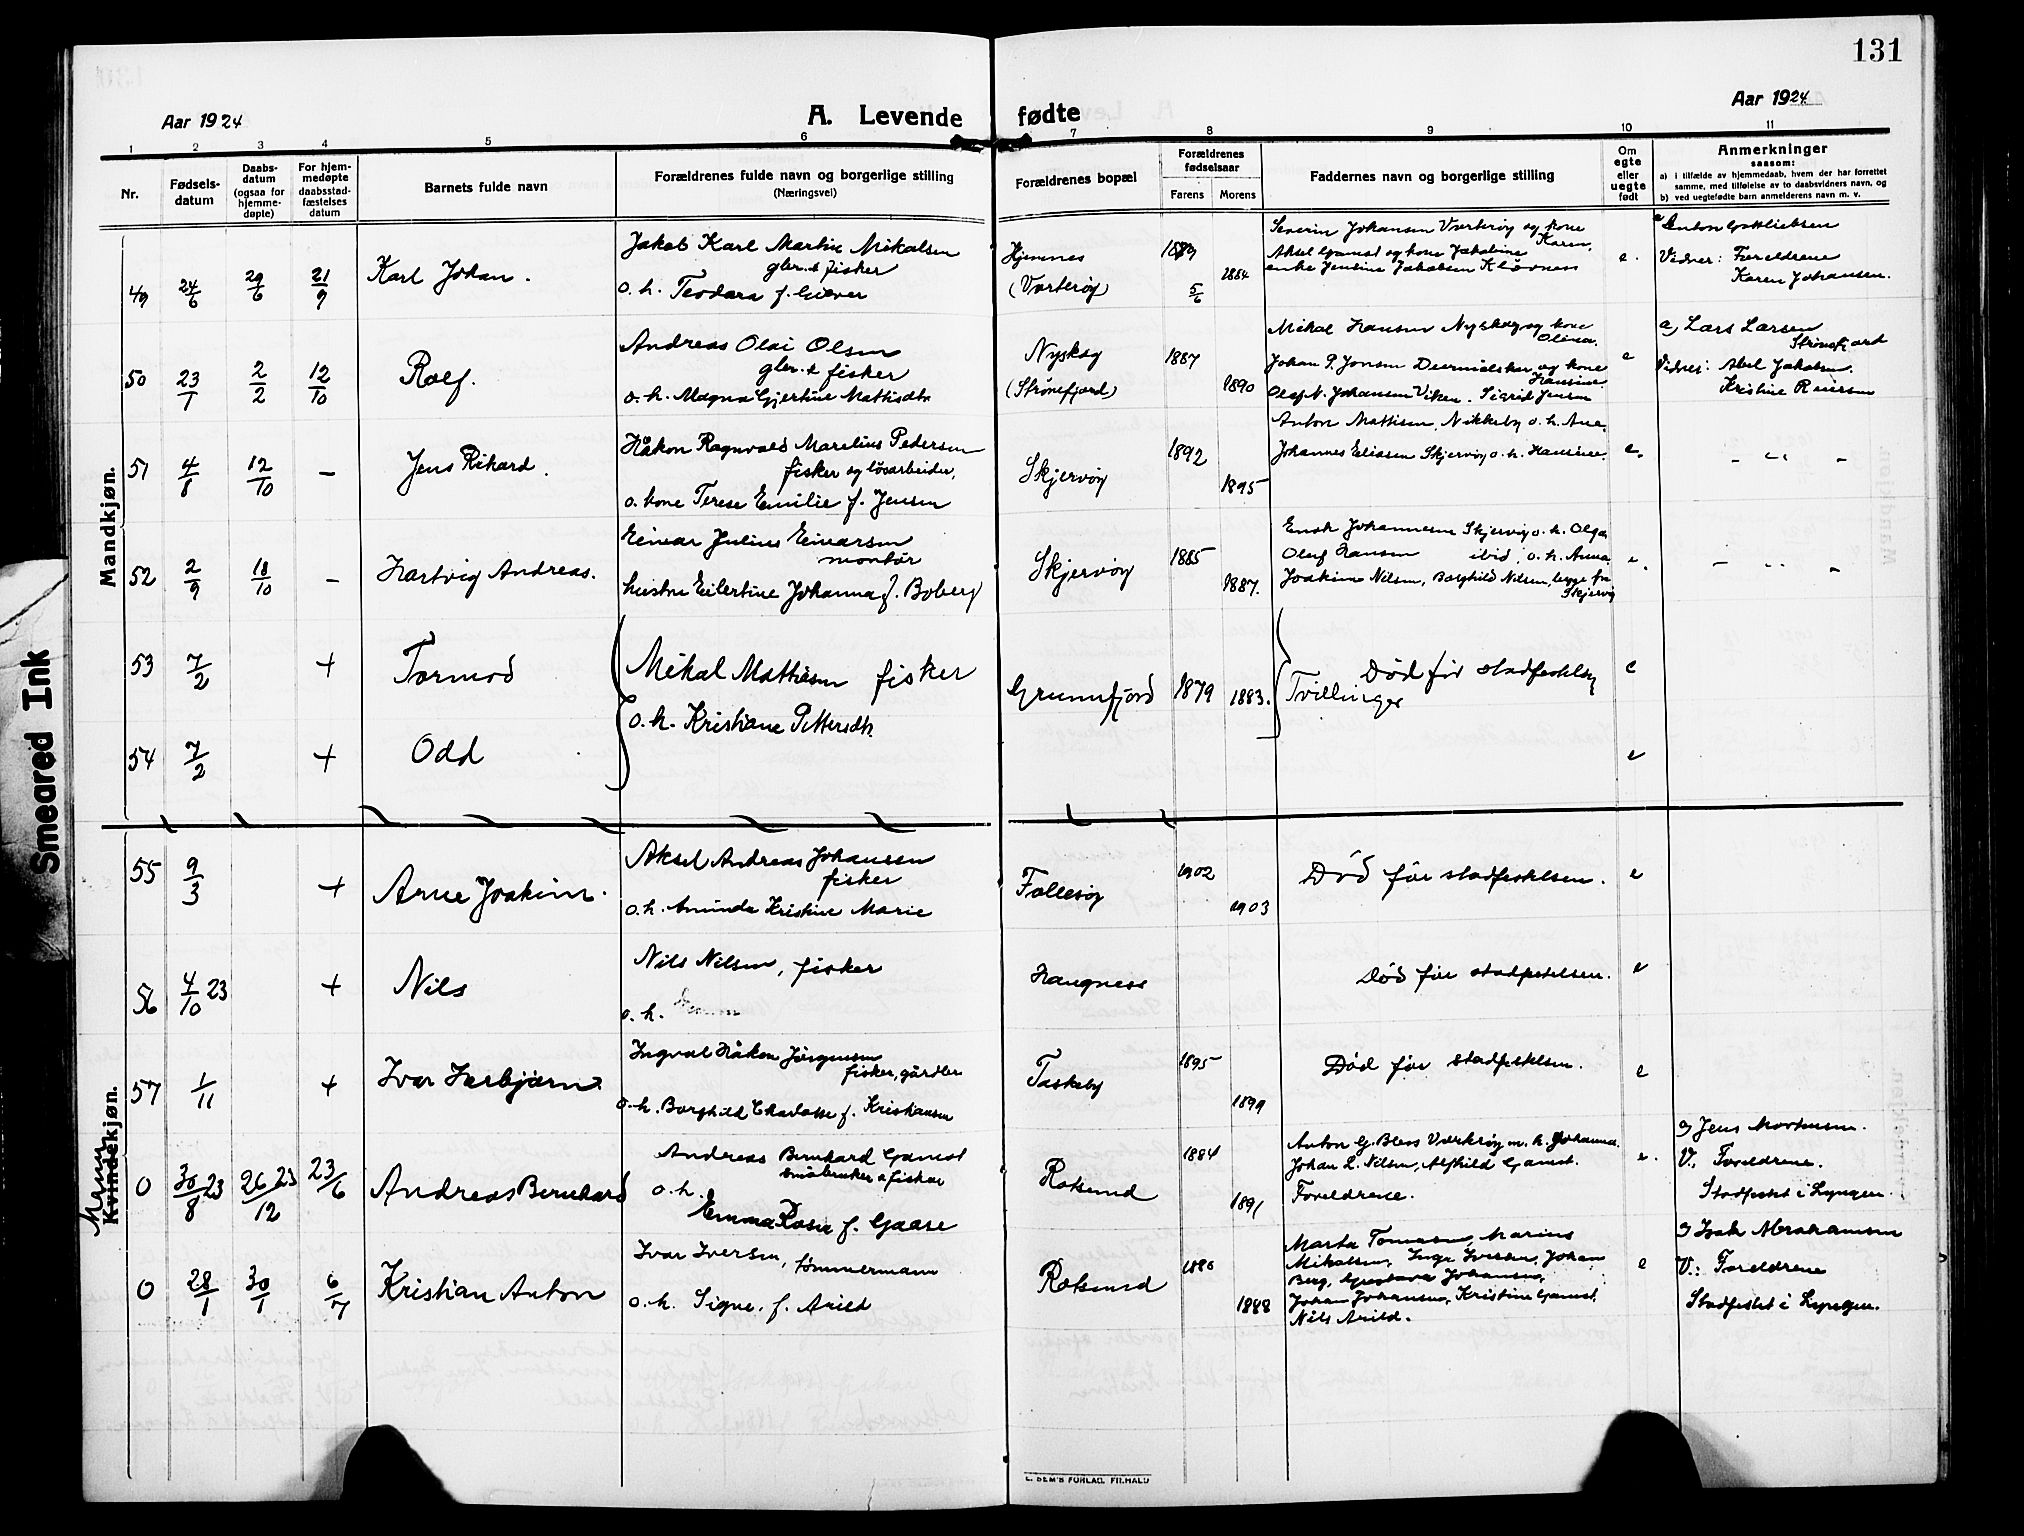 131
Aar 1924
A. Levende fødte
Aar 1924
1 2 3 4 5 6 7 8 9 10 11
Nr.
Fødsels-
datum
Daabs-
datum
(ogsaa for
hjemme-
døpte)
For hjem-
medøpte
daabsstad-
fæstelses
datum
Barnets fulde navn
Forældrenes fulde navn og borgerlige stilling
(Næringsvei)
Forældrenes bopæl
Forældrenes
fødselsaar
Farens Morens
Faddernes navn og borgerlige stilling
Om
egte
eller
uegte
født
Anmerkninger
saasom:
a) i tilfælde av hjemmedaab, hvem der har forrettet
samme, med tilføielse av to daabsvidners navn, og
b) ved uegtefødte barn anmelderens navn m. v.
Mandkjøn.
49 24/6 29/6 21/9 Karl Johan.
Jakob Karl Martin Mikalsen
gbr. & fisker
o. h. Teodora f. Giæver
Hjemnes
(Vorterøy)
1883
5/6
1884
Severin Johansen Vorterøy og kone
Karen,
Aksel Gamst og kone Jakobine
enke Jensine Jakobsen Kløvnes
e.
a Anton Gottliebsen
Vidner: Foreldrene
Karen Johansen.
50 23/1 2/2 12/10 Rolf.
Andreas Olai Olsen
gbr. & fisker
o. h. Magna Gjertine Mattisdtr
Nyskog
(Strønefjord)
1887
1890
Mikal Hansen Nyskog og kone
Olina.
Johan P. Jensen og kone
Hansine
Olaf N. Johansen Viken. Sigrid Jensen
e
a, Lars Larsen
Strønefjord
Vidner: Abel Jakobsen.
Kristine Reiersen
51 4/8 12/10 – Jens Rikard.
Håkon Ragnvald Marelius Pedersen
fisker og løsarbeider,
o. kone Terese Emilie f. Jensen
Skjervøy
1892
1895
Anton Mattisen, Nikkeby o. h. Ane,
Johannes Eliasen Skjervøy o. h. Hansine.
e.
– " –
52 2/9 18/10 – Hartvig Andreas.
Einar Julius Einarsen
montør
hustru Eilertine Johanna f. Boberg
Skjervøy
1885
1887.
Enok Johannesen Skjervøy o. h. Olga
Oluf Hansen ibid, o. h. Anna
Joakim Nilsen, Borghild Nilsen, begge fra
Skjervøy
e.
– " –
53 7/2 + Tormod
Mikal Mathisen fisker
o. h. Kristiane Pettersdtr.
Grunnfjord 1879 1883.
Død før stadfestelse
Tvillinger
e
54 7/2 + Odd
e
55 9/3 + Arne Joakim.
Aksel Andreas Johansen
fisker
o. h. Aminda Kristine Marie
Follesøy
1902
1903
Død før stadfestelsen.
e
56 4/10 23 + Nils
Nils Nilsen, fisker
o. h.
Haugness
Død før stadfestelsen.
e
57 1/11 + Ivar Herbjørn.
Ingval Håkon Jørgensen
fisker, gårdbr
o. h. Borghild Charlotte f. Kristiansen
Taskeby
1895
1899
Død før stadfestelsen.
e
Mann
Kvindekjøn.
0 30/8 23 26/12 23 23/6 Andreas Bernhard
Andreas Bernhard Gamst
småbruker & fisker
o. h.
Emma Rosine f. Gaase
Rotsund
1884
1891
Anton G. Bless Vorterøy m. h. Johanna.
Johan L. Nilsen, Alfhild Gamst.
Foreldrene.
e.
a) Jens Mortensen.
V., Foreldrene.
Stadfestet i Lyngen.
0 28/1 30/1 6/7 Kristian Anton
Ivar Iversen, tømmermann
o. h. Signe, f. Arild
Rotsund
1886
1888
Marta Tomasen, Marius
Mikalsen, Inga Iversen, Johan
Berg, Gustava Johansen,
Johan Johansen, Kristine Gamst.
Nils Arild.
e
a) Isak Abrahamsen
V.: Foreldrene
Stadfestet i Lyngen.
Smeared Ink
E. SEM'S FORLAG. FR.HALD